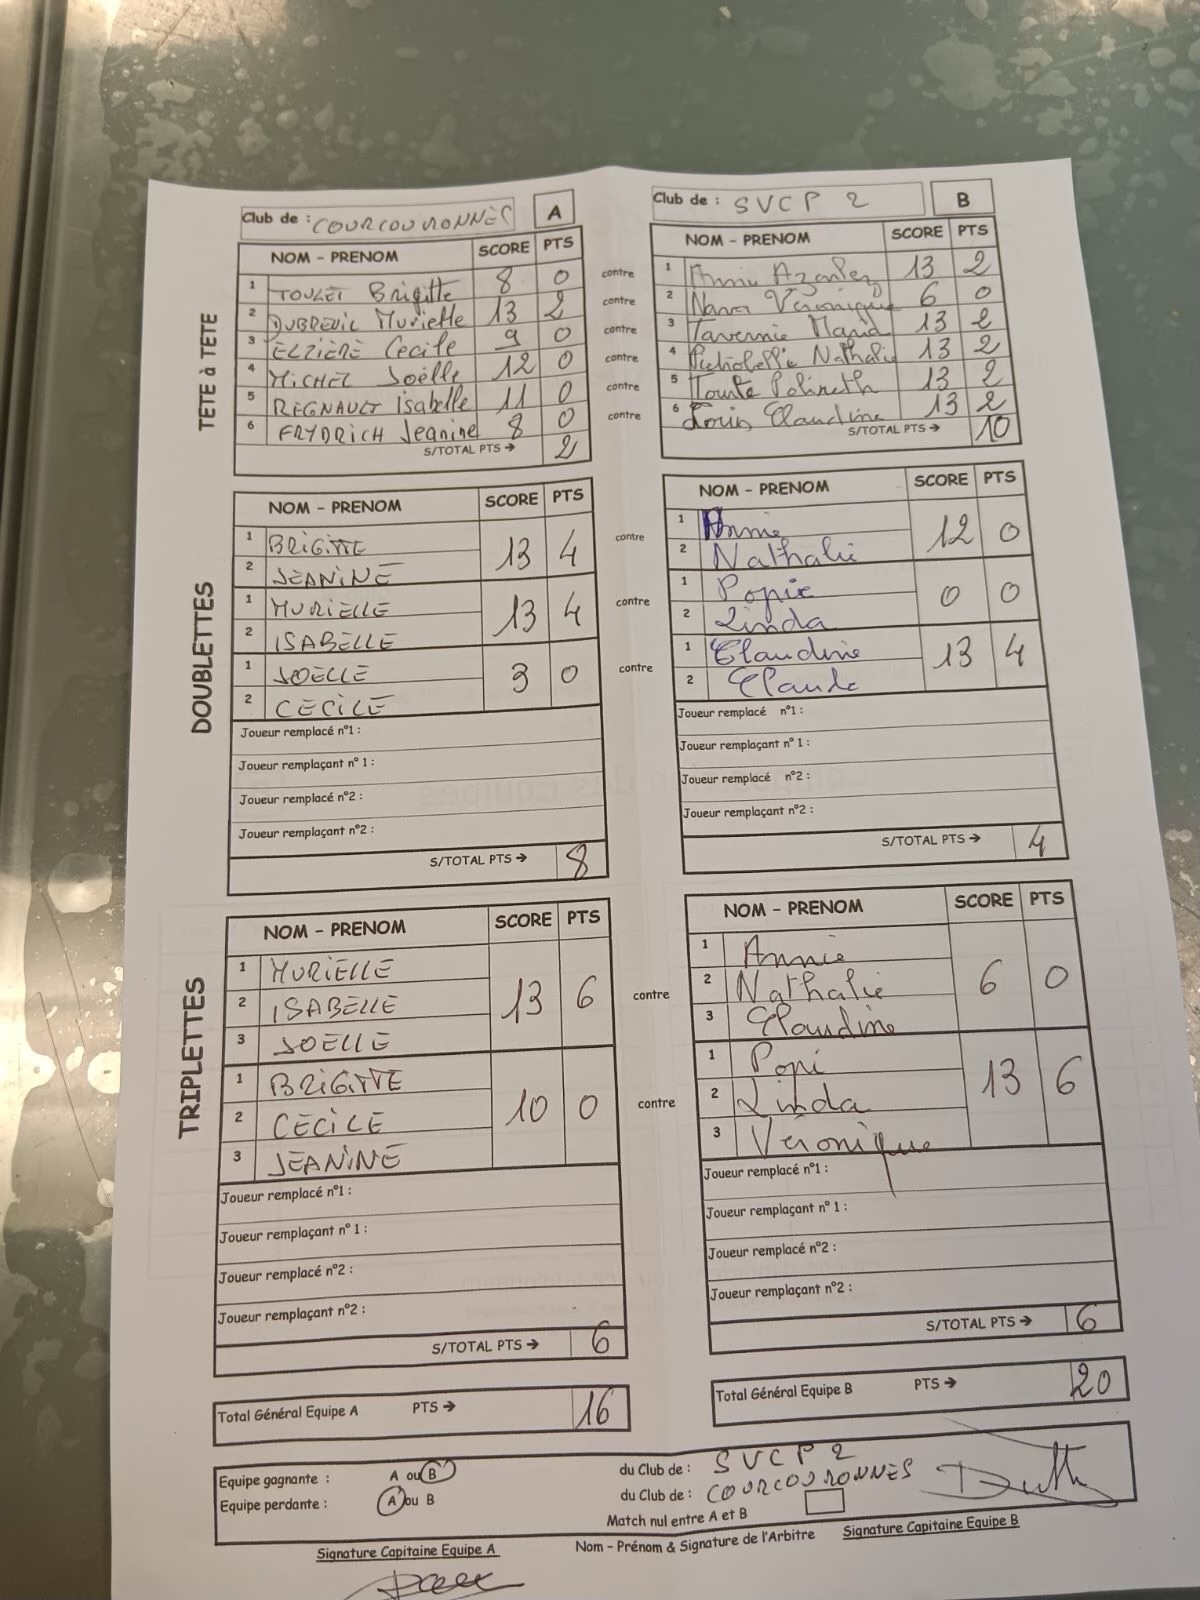 Club de : COURCOURONNES A
NOM - PRENOM SCORE PTS
TETE à TETE
1 TOULET Brigitte 8 0
2 DUBREUIL Murielle 13 2
3 ELZIERE Cecile 9 0
4 MICHEL Joëlle 12 0
5 REGNAULT Isabelle 11 0
6 FRYDRICH Jeanine 8 0
S/TOTAL PTS → 2
contre
contre
contre
contre
contre
contre
Club de : SVCP 2 B
NOM - PRENOM SCORE PTS
1 Annie 13 2
2 Véronique 6 0
3 Tavernie 13 2
4 Nathalie 13 2
5 13 2
6 Claudine 13 2
S/TOTAL PTS → 10
DOUBLETTES
NOM - PRENOM SCORE PTS
1 BRIGITTE
13 4
2 JEANINE
1 MURIELLE
13 4
2 ISABELLE
1 JOELLE
3 0
2 CECILE
Joueur remplacé n°1 :
Joueur remplaçant n° 1 :
Joueur remplacé n°2 :
Joueur remplaçant n°2 :
S/TOTAL PTS → 8
contre
contre
contre
NOM - PRENOM SCORE PTS
1 Annie
12 0
2 Nathalie
1 Popie
0 0
2 Linda
1 Claudine
13 4
2 Claude
Joueur remplacé n°1 :
Joueur remplaçant n° 1 :
Joueur remplacé n°2 :
Joueur remplaçant n°2 :
S/TOTAL PTS → 4
TRIPLETTES
NOM - PRENOM SCORE PTS
1 MURIELLE
2 ISABELLE 13 6
3 JOELLE
1 BRIGITTE
2 CECILE 10 0
3 JEANINE
Joueur remplacé n°1 :
Joueur remplaçant n° 1 :
Joueur remplacé n°2 :
Joueur remplaçant n°2 :
S/TOTAL PTS → 6
contre
contre
NOM - PRENOM SCORE PTS
1 Annie
2 Nathalie 6 0
3 Claudine
1 Popi
2 Linda 13 6
3 Véronique
Joueur remplacé n°1 :
Joueur remplaçant n° 1 :
Joueur remplacé n°2 :
Joueur remplaçant n°2 :
S/TOTAL PTS → 6
Total Général Equipe A PTS → 16
Total Général Equipe B PTS → 20
Equipe gagnante : A ou B du Club de : SVCP 2
Equipe perdante : A ou B du Club de : COURCOURONNES
Match nul entre A et B
Signature Capitaine Equipe A Nom - Prénom & Signature de l'Arbitre Signature Capitaine Equipe B